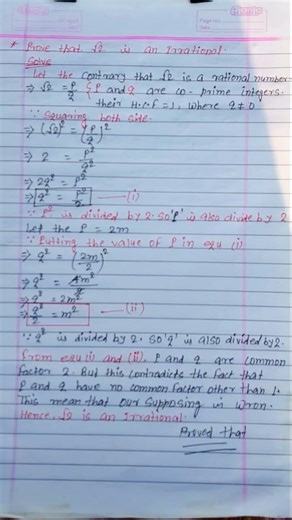 * Prove that √2 is an Irrational.
Solve
Let the contrary that √2 is a rational number.
⇒ √2 = p/q { p and q are co-prime integers.
their H.C.F = 1, where q ≠ 0
∵ Squaring both site.
⇒ (√2)² = (p/q)²
⇒ 2 = p²/q²
⇒ 2q² = p²
⇒ q² = p²/2 —(i)
∵ p² is divided by 2. so 'p' is also divide by 2
Let the p = 2m
∵ Putting the value of p in equ (i)
⇒ q² = (2m)²/2
⇒ q² = 4m²/2
⇒ q² = 2m²
⇒ q²/2 = m² —(ii)
∵ q² is divided by 2. so 'q' is also divided by 2.
from equ (i) and (ii), p and q are common
factor 2. But this contradicts the fact that
p and q have no common factor other than 1.
This mean that our supposing is wron.
Hence, √2 is an Irrational.
Proved that